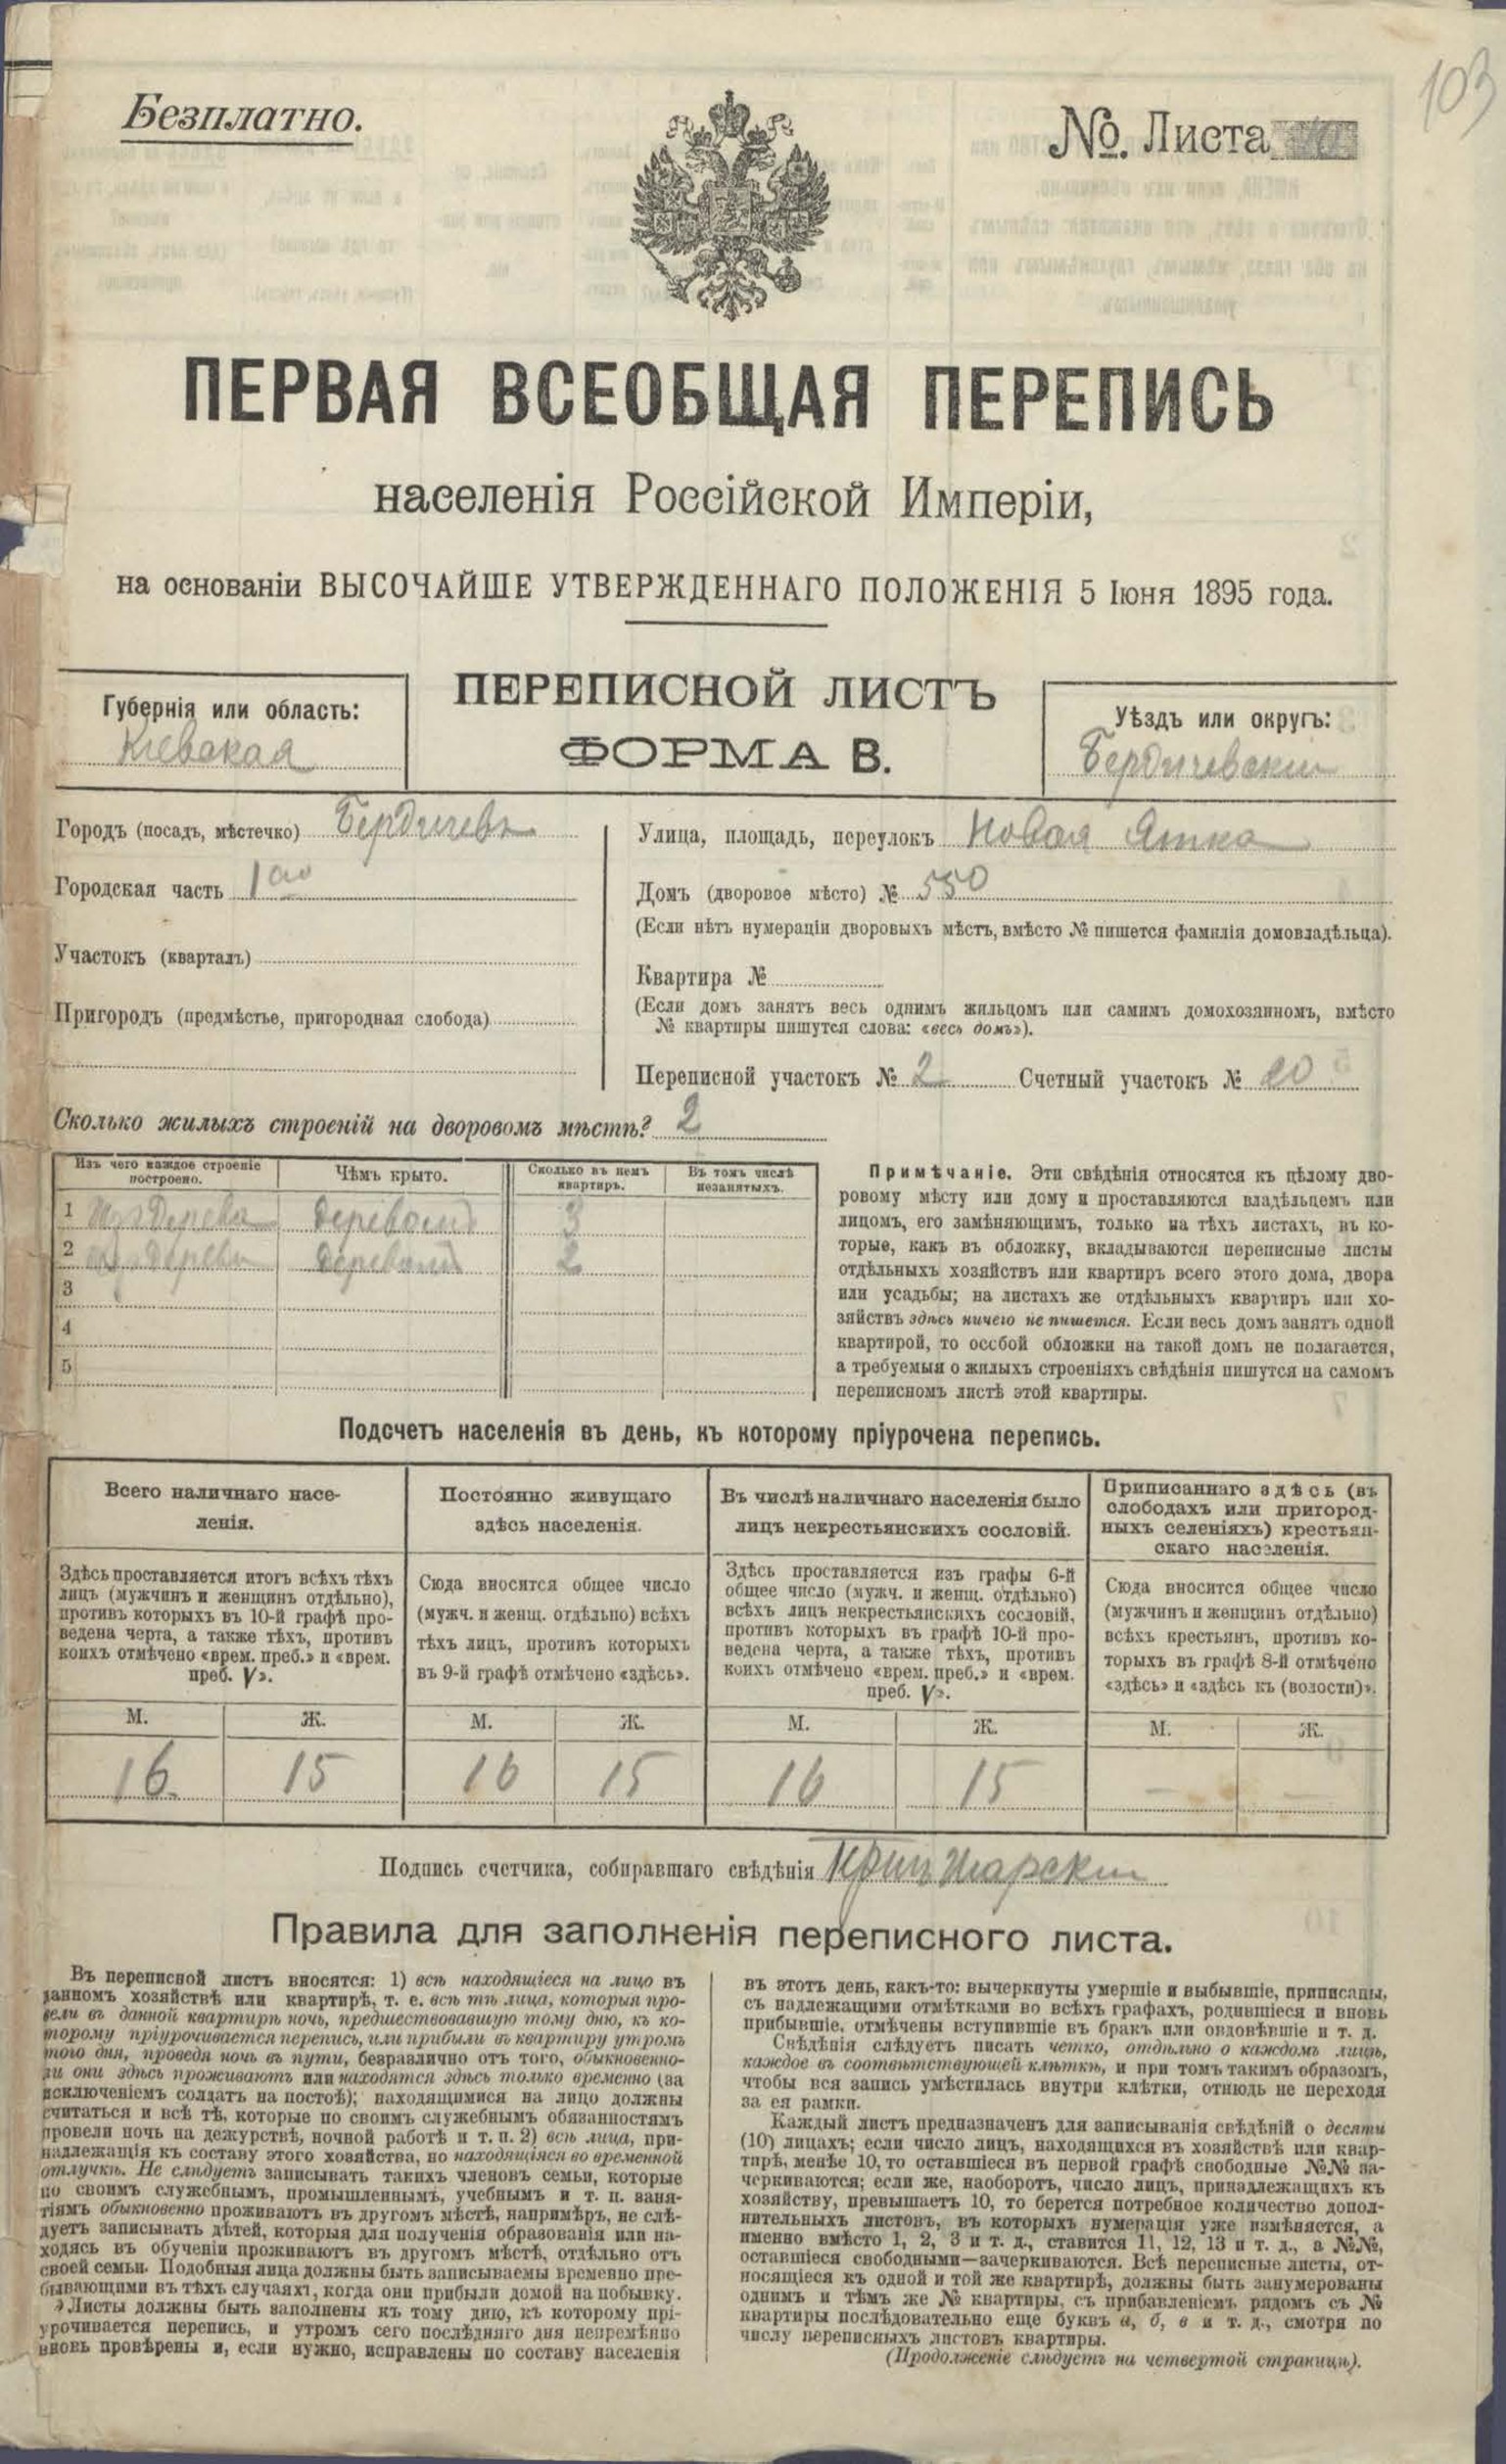 103
Безплатно.
№. Листа
ПЕРВАЯ ВСЕОБЩАЯ ПЕРЕПИСЬ
населенія Россійской Имперіи,
на основаніи ВЫСОЧАЙШЕ УТВЕРЖДЕННАГО ПОЛОЖЕНІЯ 5 Іюня 1895 года.
ПЕРЕПИСНОЙ ЛИСТЪ
ФОРМА В.
Губернія или область:
Кіевская
Уѣздъ или округъ:
Бердичевскій
Городъ (посадъ, мѣстечко) Бердичевъ
Городская часть 1ая
Участокъ (кварталъ)
Пригородъ (предмѣстье, пригородная слобода)
Улица, площадь, переулокъ Новая
Домъ (дворовое мѣсто) № 550
(Если нѣтъ нумераціи дворовыхъ мѣстъ, вмѣсто № пишется фамилія домовладѣльца).
Квартира №
(Если домъ занятъ весь однимъ жильцомъ или самимъ домохозяиномъ, вмѣсто
№ квартиры пишутся слова: «весь домъ»).
Переписной участокъ № 2 Счетный участокъ № 20
Сколько жилыхъ строеній на дворовомъ мѣстѣ? 2
Изъ чего каждое строеніе построено. Чѣмъ крыто. Сколько въ немъ квартиръ. Въ томъ числѣ незанятыхъ.
1 Изъ дерева деревомъ 3
2 Изъ дерева деревомъ 2
3
4
5
Примѣчаніе. Эти свѣдѣнія относятся къ цѣлому дво-
ровому мѣсту или дому и проставляются владѣльцемъ или
лицомъ, его замѣняющимъ, только на тѣхъ листахъ, въ ко-
торые, какъ въ обложку, вкладываются переписные листы
отдѣльныхъ хозяйствъ или квартиръ всего этого дома, двора
или усадьбы; на листахъ же отдѣльныхъ квартиръ или хо-
зяйствъ здѣсь ничего не пишется. Если весь домъ занятъ одной
квартирой, то особой обложки на такой домъ не полагается,
а требуемыя о жилыхъ строеніяхъ свѣдѣнія пишутся на самомъ
переписномъ листѣ этой квартиры.
Подсчетъ населенія въ день, къ которому пріурочена перепись.
Всего наличнаго насе-
ленія.
Здѣсь проставляется итогъ всѣхъ тѣхъ
лицъ (мужчинъ и женщинъ отдѣльно),
противъ которыхъ въ 10-й графѣ про-
ведена черта, а также тѣхъ, противъ
коихъ отмѣчено «врем. преб.» и «врем.
преб. V».
М. Ж.
16 15
Постоянно живущаго
здѣсь населенія.
Сюда вносится общее число
(мужч. и женщ. отдѣльно) всѣхъ
тѣхъ лицъ, противъ которыхъ
въ 9-й графѣ отмѣчено «здѣсь».
М. Ж.
16 15
Въ числѣ наличнаго населенія было
лицъ некрестьянскихъ сословій.
Здѣсь проставляется изъ графы 6-й
общее число (мужч. и женщ. отдѣльно)
всѣхъ лицъ некрестьянскихъ сословій,
противъ которыхъ въ графѣ 10-й про-
ведена черта, а также тѣхъ, противъ
коихъ отмѣчено «врем. преб.» и «врем.
преб. V».
М. Ж.
16 15
Приписаннаго здѣсь (въ
слободахъ или пригород-
ныхъ селеніяхъ) крестьян-
скаго населенія.
Сюда вносится общее число
(мужчинъ и женщинъ отдѣльно)
всѣхъ крестьянъ, противъ ко-
торыхъ въ графѣ 8-й отмѣчено
«здѣсь» и «здѣсь къ (волости)».
М. Ж.
— —
Подпись счетчика, собиравшаго свѣдѣнія
Правила для заполненія переписного листа.
Въ переписной листъ вносятся: 1) всѣ находящіеся на лицо въ
данномъ хозяйствѣ или квартирѣ, т. е. всѣ тѣ лица, которыя про-
вели въ данной квартирѣ ночь, предшествовавшую тому дню, къ ко-
торому пріурочивается перепись, или прибыли въ квартиру утромъ
того дня, проведя ночь въ пути, безразлично отъ того, обыкновенно-
ли они здѣсь проживаютъ или находятся здѣсь только временно (за
исключеніемъ солдатъ на постоѣ); находящимися на лицо должны
считаться и всѣ тѣ, которые по своимъ служебнымъ обязанностямъ
провели ночь на дежурствѣ, ночной работѣ и т. п. 2) всѣ лица, при-
надлежащія къ составу этого хозяйства, но находящіяся во временной
отлучкѣ. Не слѣдуетъ записывать такихъ членовъ семьи, которые
по своимъ служебнымъ, промышленнымъ, учебнымъ и т. п. заня-
тіямъ обыкновенно проживаютъ въ другомъ мѣстѣ, напримѣръ, не слѣ-
дуетъ записывать дѣтей, которыя для полученія образованія или на-
ходясь въ обученіи проживаютъ въ другомъ мѣстѣ, отдѣльно отъ
своей семьи. Подобныя лица должны быть записываемы временно пре-
бывающими въ тѣхъ случаяхъ, когда они прибыли домой на побывку.
Листы должны быть заполнены къ тому дню, къ которому прі-
урочивается перепись, и утромъ сего послѣдняго дня непремѣнно
вновь провѣрены и, если нужно, исправлены по составу населенія
въ этотъ день, какъ-то: вычеркнуты умершіе и выбывшіе, приписаны,
съ надлежащими отмѣтками во всѣхъ графахъ, родившіеся и вновь
прибывшіе, отмѣчены вступившіе въ бракъ или овдовѣвшіе и т. д.
Свѣдѣнія слѣдуетъ писать четко, отдѣльно о каждомъ лицѣ,
каждое въ соотвѣтствующей клѣткѣ, и при томъ такимъ образомъ,
чтобы вся запись умѣстилась внутри клѣтки, отнюдь не переходя
за ея рамки.
Каждый листъ предназначенъ для записыванія свѣдѣній о десяти
(10) лицахъ; если число лицъ, находящихся въ хозяйствѣ или квар-
тирѣ, менѣе 10, то оставшіеся въ первой графѣ свободные №№ за-
черкиваются; если же, наоборотъ, число лицъ, принадлежащихъ къ
хозяйству, превышаетъ 10, то берется потребное количество допол-
нительныхъ листовъ, въ которыхъ нумерація уже измѣняется, а
именно вмѣсто 1, 2, 3 и т. д., ставится 11, 12, 13 и т. д., а №№,
оставшіеся свободными—зачеркиваются. Всѣ переписные листы, от-
носящіеся къ одной и той же квартирѣ, должны быть занумерованы
однимъ и тѣмъ же № квартиры, съ прибавленіемъ рядомъ съ №
квартиры послѣдовательно еще буквъ а, б, в и т. д., смотря по
числу переписныхъ листовъ квартиры.
(Продолженіе слѣдуетъ на четвертой страницѣ).